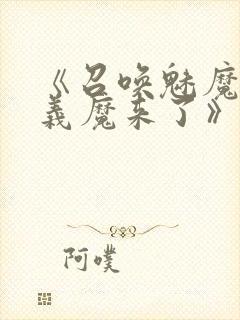 《召唤魅魔
義魔来了》
阿噗